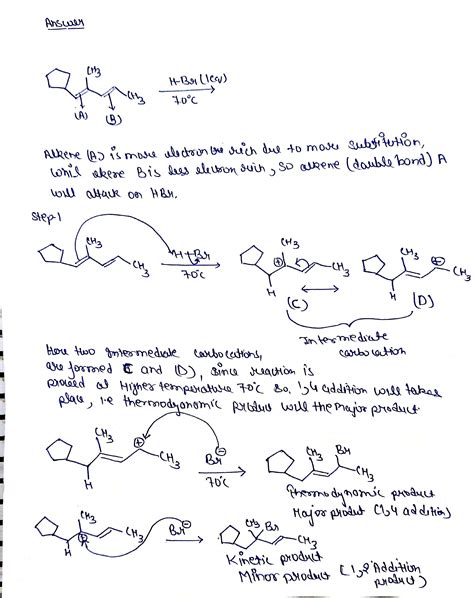 Answer
CH3
H-Br (1eq)
CH3
70°C
(A)
(B)
Alkene (A) is more electron rich due to more substitution,
whil alkene B is less electron rich, so alkene (double bond) A
will attack on HBr.
Step-1
CH3
H-Br
CH3
70°C
CH3
CH3
H
(C)
CH3
CH3
H
(D)
Intermediate
carbocation
Here two Intermediate carbocations,
are formed C and (D), since reaction is
proceed at Higher temperature 70°C so. 1,4 addition will takes
place, i.e thermodyonomic product will the major product
CH3
CH3
H
Br
70°C
CH3
Br
CH3
thermodynamic product
Major product (1,4 addition)
CH3
CH3
H
Br
CH3
Br
CH3
Kinetic product
Minor product (1,2 Addition
product)